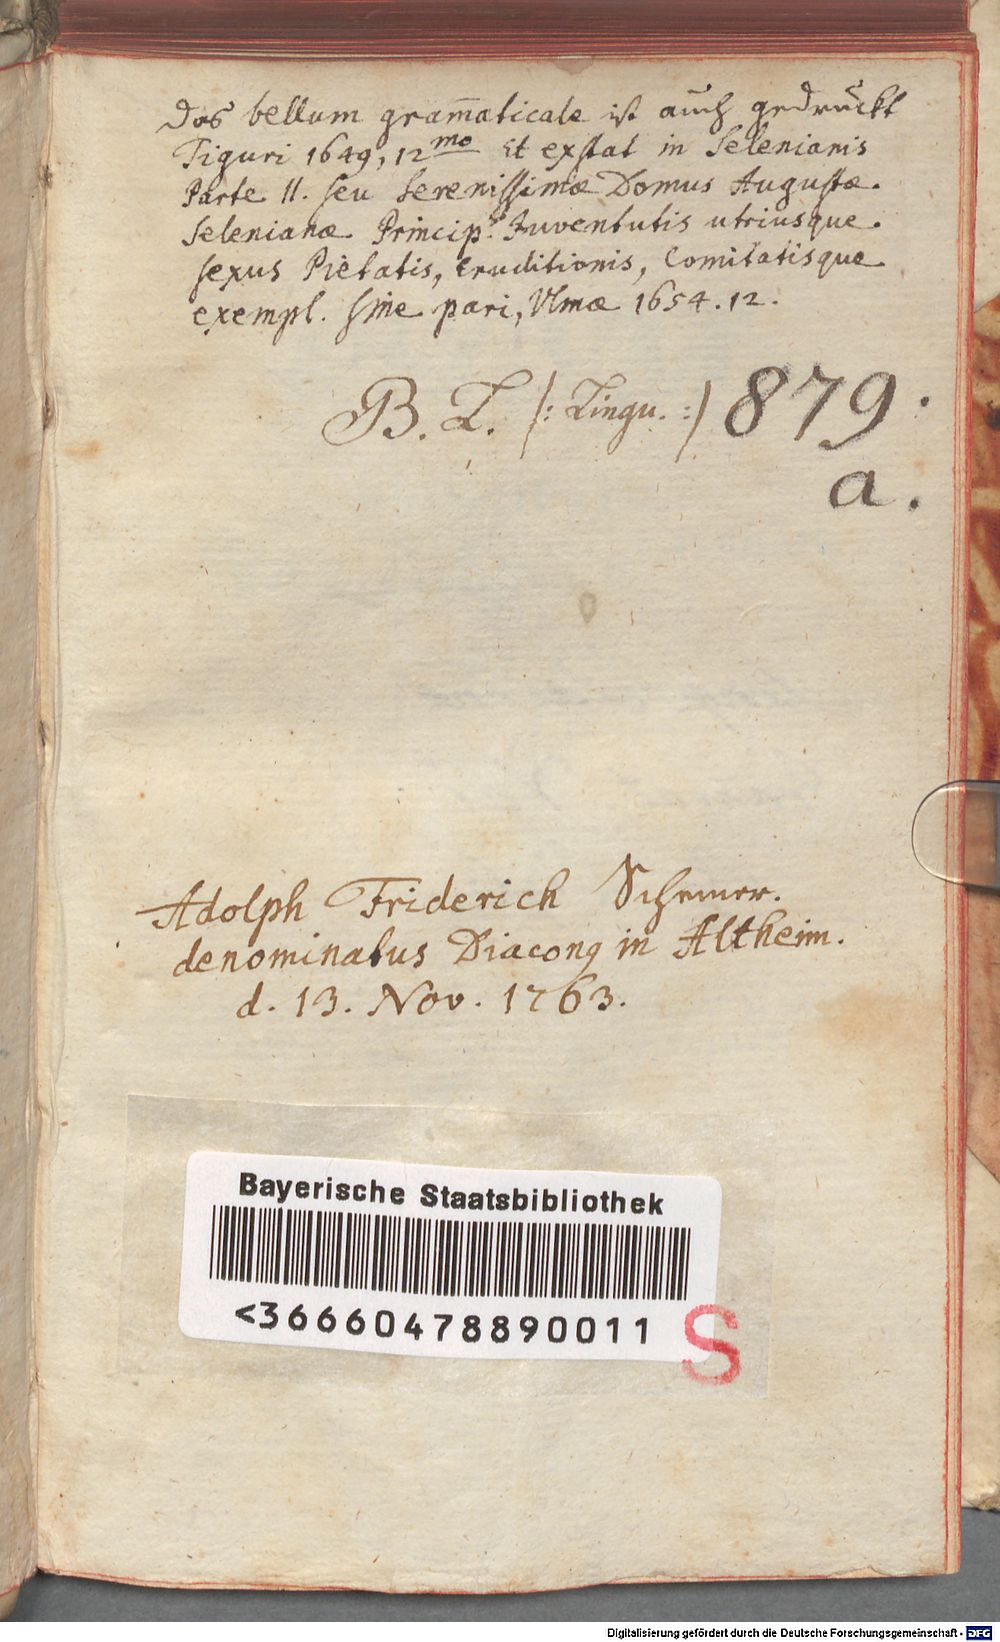 Das bellum gram̄aticale ist auch gedruckt
Tiguri 1649, 12mo Et exstat in Selenianis
Parte II. seu Serenissimæ Domus Augustæ.
Selenianæ Princip. Juventutis utriusque.
sexus Pietatis, Eruditionis, Comitatisque
exempl. sine pari, Ulmæ 1654. 12.
B. L. (: Lingu. :) 879.
a.
Adolph Friderich
denominatus Diacong in Altheim.
d. 13. Nov. 1763.
Bayerische Staatsbibliothek
<36660478890011
S
Digitalisierung gefördert durch die Deutsche Forschungsgemeinschaft - DFG